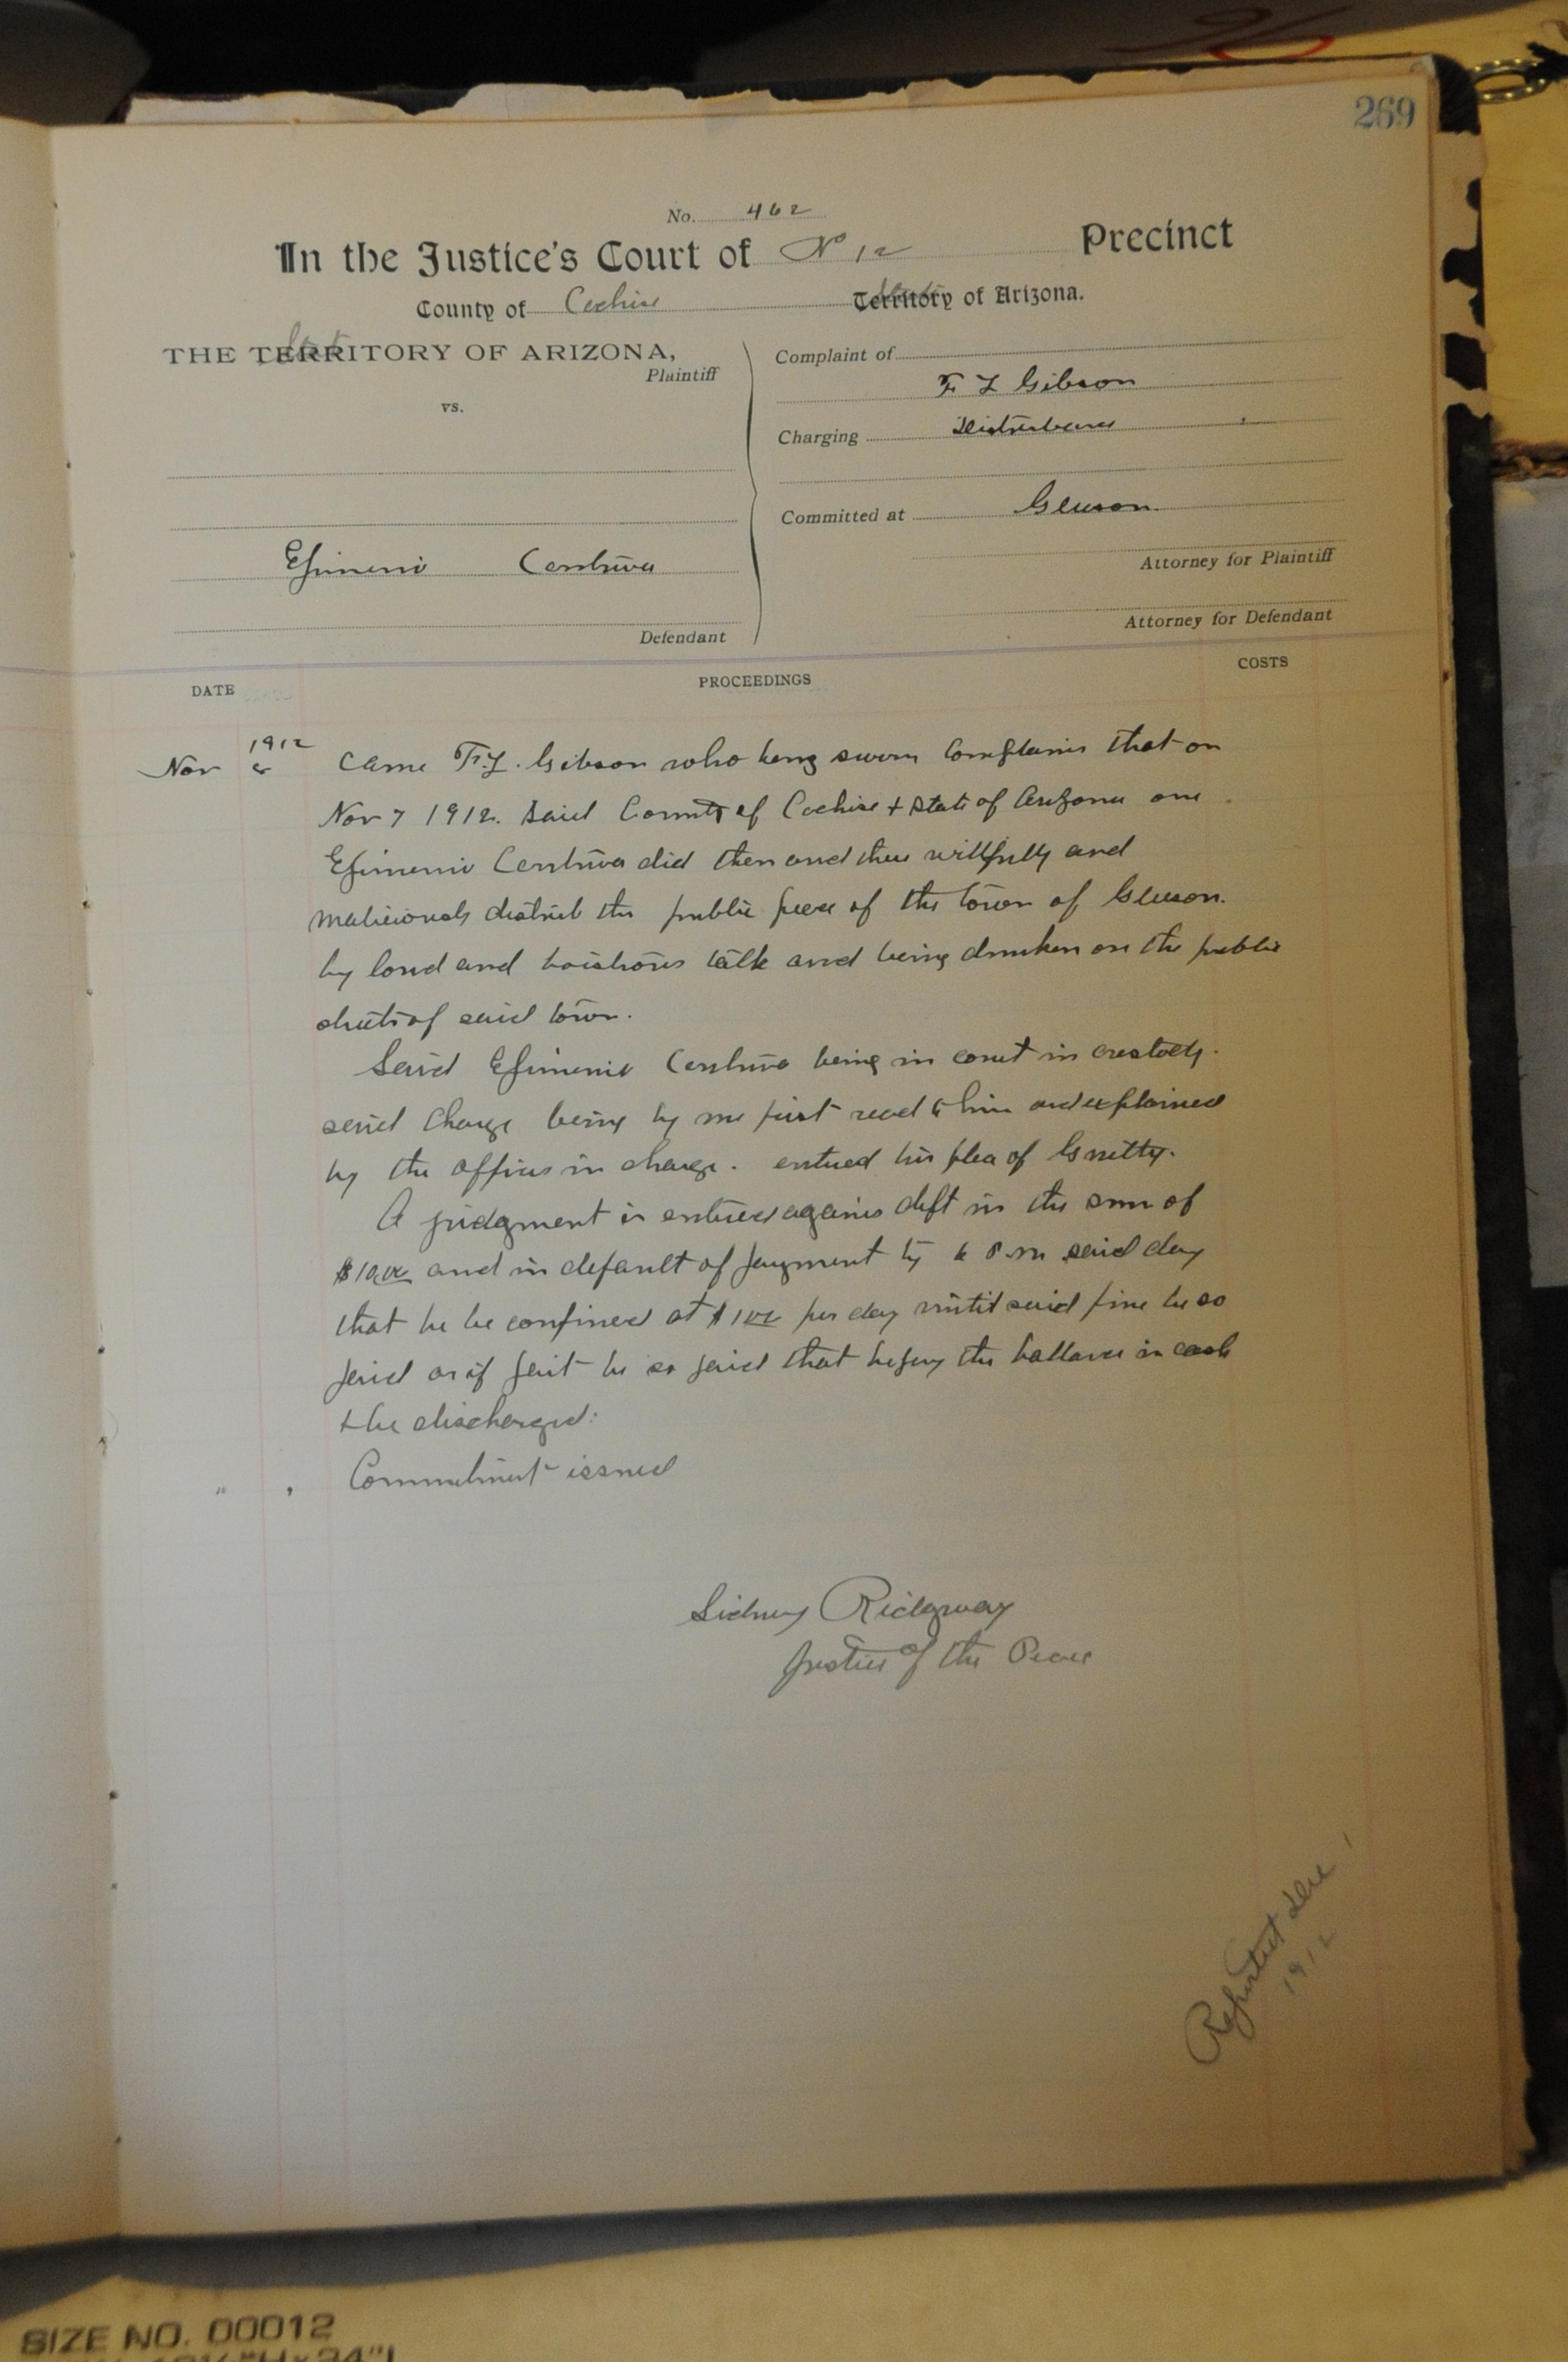 269
No. 462
In the Justice's Court of No 12 Precinct
County of Cochise State Territory of Arizona.
THE State TERRITORY OF ARIZONA,
Plaintiff
vs.
Efimenio
Defendant
Complaint of
F L Gibson
Charging Disturbance
Committed at Gleeson.
Attorney for Plaintiff
Attorney for Defendant
DATE PROCEEDINGS COSTS
1912
Nov 8 Came F.L. Gibson who being sworn Complains that on
Nov 7 1912. said County of Cochise + State of Arizona one
Efimenio did then and there willfully and
maliciously disturb the public peace of the town of Gleeson.
by loud and boistrous talk and being drunken on the public
streets of said town.
Said Efimenio being in court in custody.
said Charge being by me first read to him and explained
by the officer in charge. entered his plea of Guilty.
A judgment is entered agains deft in the sum of
$10.00 and in default of payment by 6 P.M said day
that he be confined at $1.00 per day until said fine be so
paid or if part be so paid that he pay the ballance in cash
+ be discharged:
" , Commitment issued
Sidney Ridgway
Justice of the Peace
Reported Dec 1
1912
SIZE NO. 00012